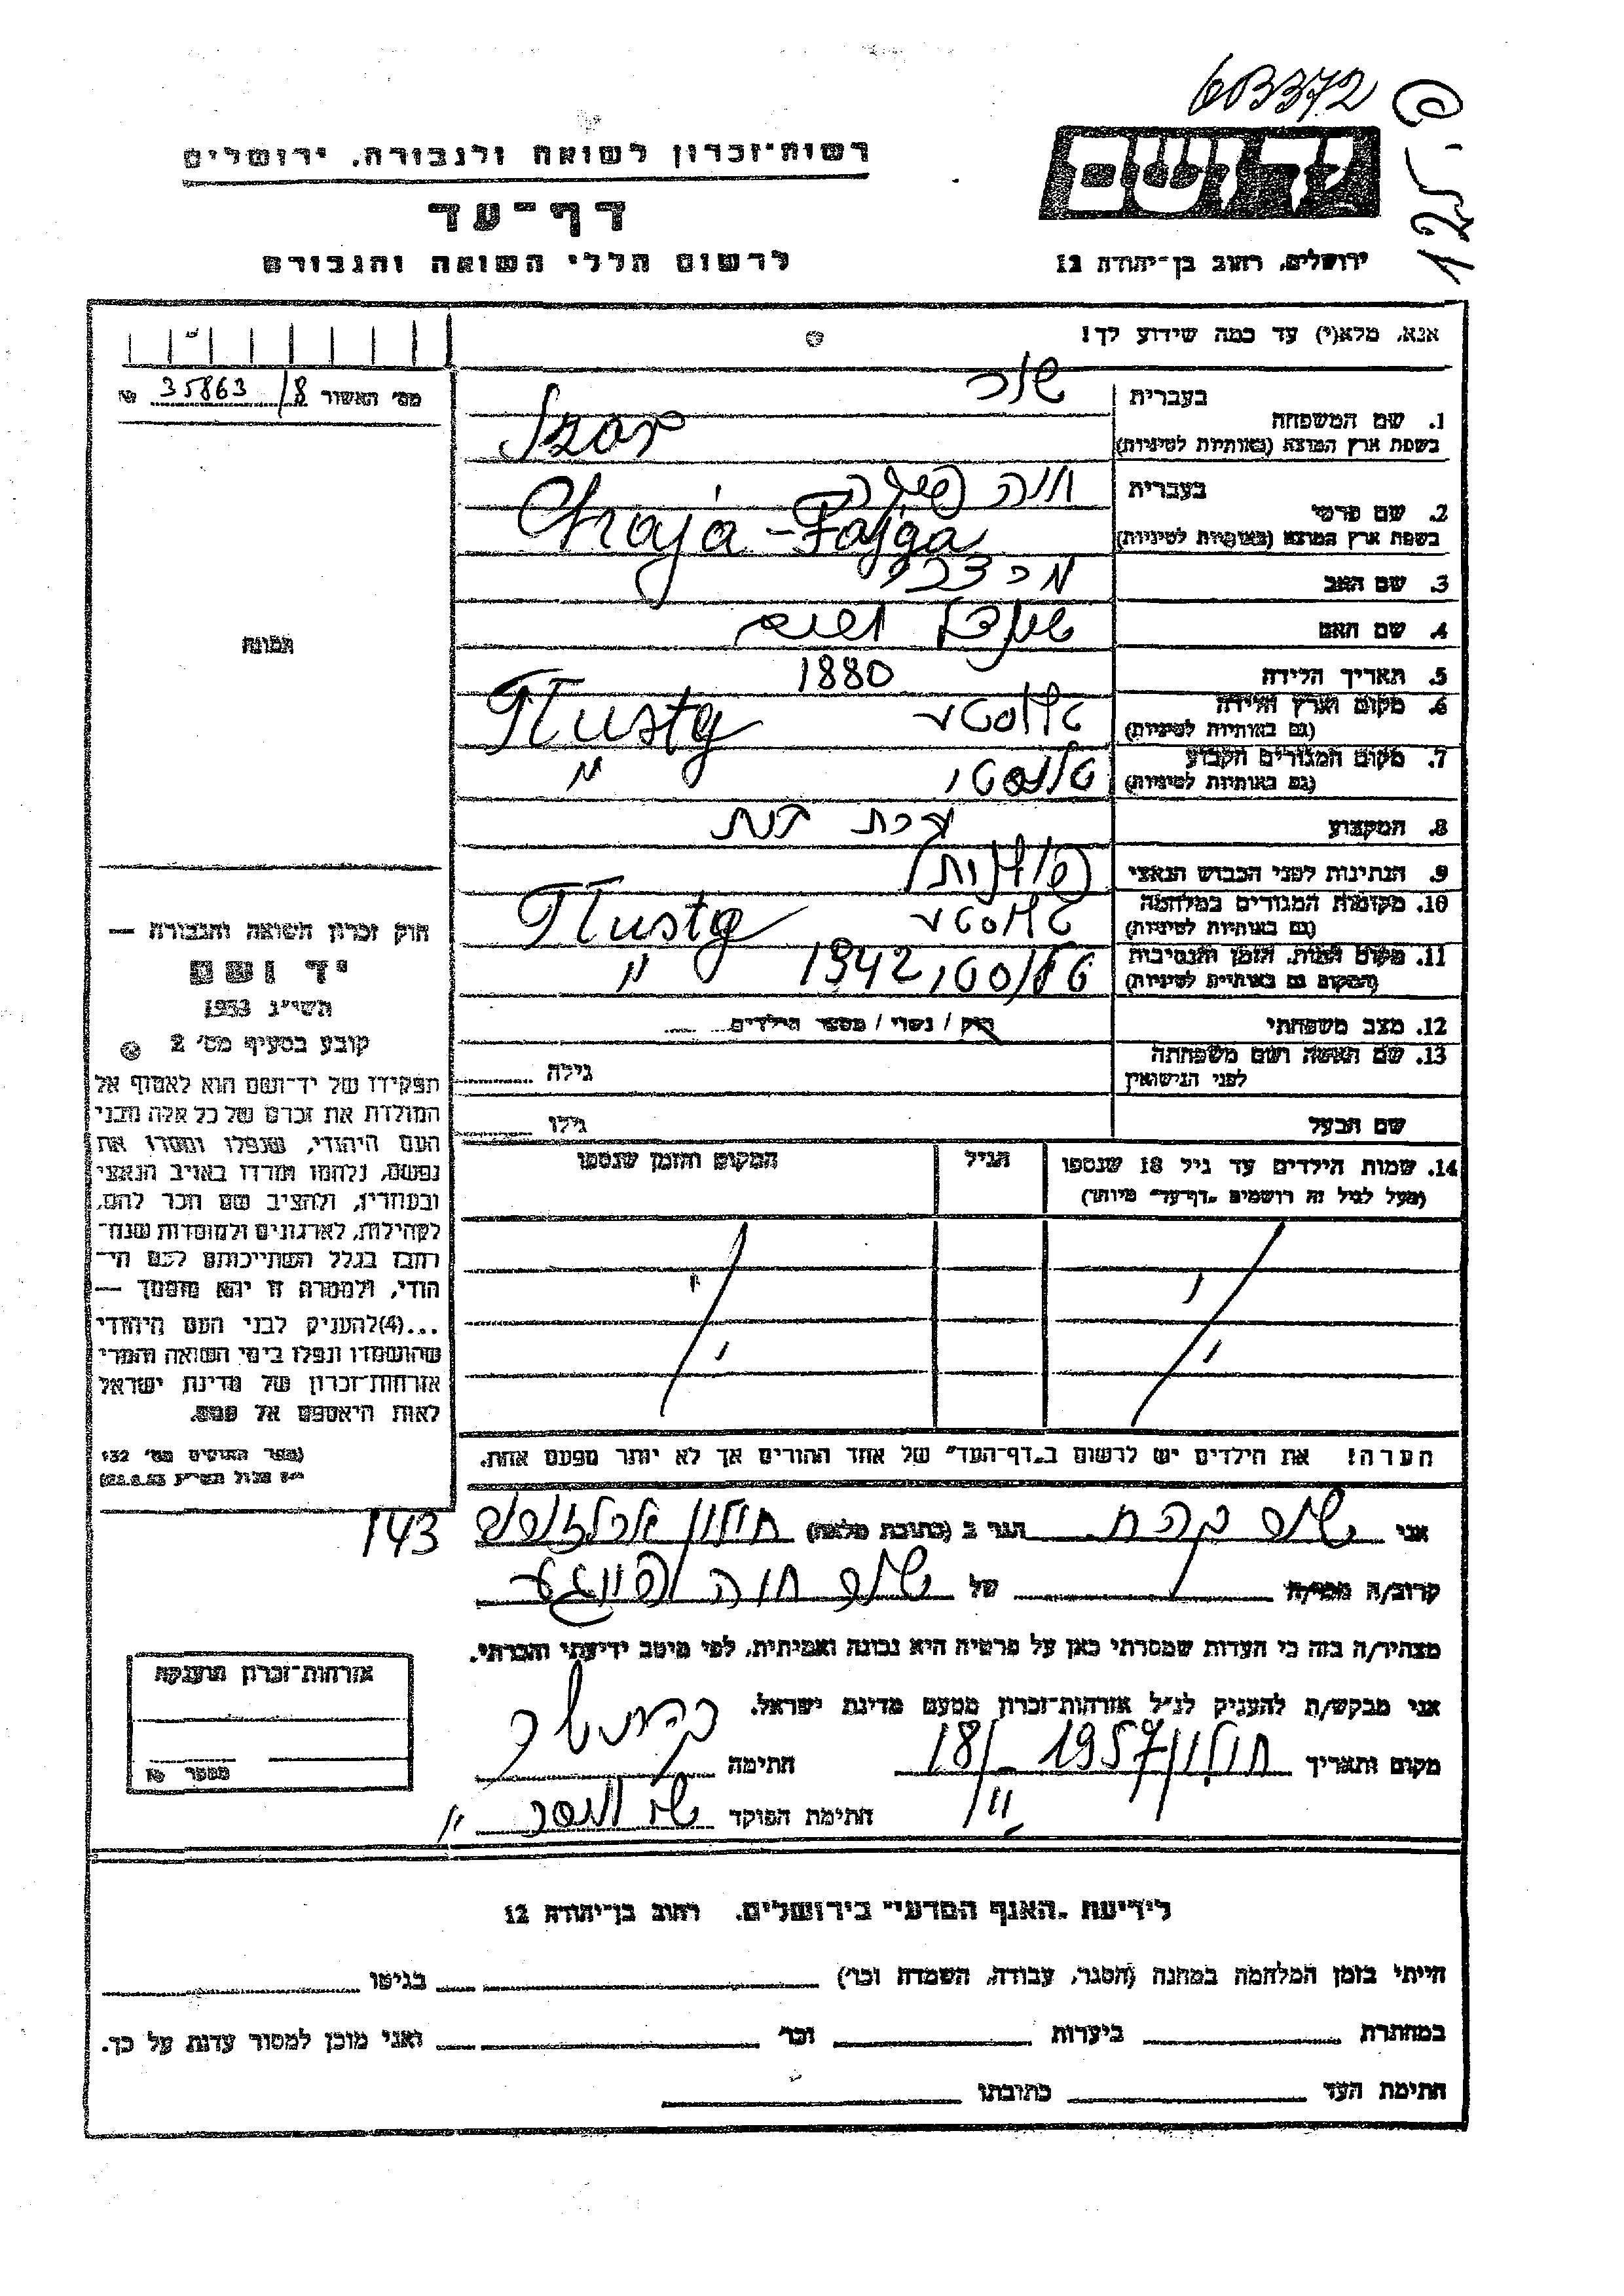 6B372
רשות־זכרון לשואה ולגבורה, ירושלים
דף־עד
לרשום חללי השואה והגבורה
יד ושם
ירושלים, רחוב בן־יהודה 12
אנא, מלא(י) עד כמה שידוע לך!
מס' האשור 35863/8
1. שם המשפחה
בעברית
בשפת ארץ המוצא (באותיות לטיניות) Szor
2. שם פרטי
בעברית חיה פייגה
בשפת ארץ המוצא (באותיות לטיניות) Chaja-Fajga
3. שם האב
4. שם האם
5. תאריך הלידה 1880
6. מקום וארץ הלידה
(גם באותיות לטיניות) Tłuste
7. מקום המגורים הקבוע
(גם באותיות לטיניות) "
8. המקצוע עקרת בית
9. הנתינות לפני הכבוש הנאצי פולנית
10. מקומות המגורים במלחמה
(גם באותיות לטיניות) Tłuste
11. מקום המות, הזמן והנסיבות
(המקום גם באותיות לטיניות) 1942 "
12. מצב משפחתי רוק / נשוי / מספר הילדים
13. שם האשה ושם משפחתה
לפני הנישואין גילה
שם הבעל גילו
14. שמות הילדים עד גיל 18 שנספו הגיל המקום והזמן שנספו
(מעל לגיל זה רושמים "דף־עד" מיוחד)
הערה! את הילדים יש לרשום ב"דף־העד" של אחד ההורים אך לא יותר מפעם אחת.
תמונה
חוק זכרון השואה והגבורה —
יד ושם
תשי"ג 1953
קובע בסעיף מס' 2
תפקידו של יד־ושם הוא לאסוף אל
המולדת את זכרם של כל אלה מבני
העם היהודי, שנפלו ומסרו את
נפשם, נלחמו ומרדו באויב הנאצי
ובעוזריו, ולהציב שם וזכר להם,
לקהילות, לארגונים ולמוסדות שנח־
רבו בגלל השתייכותם לעם הי־
הודי, ולמטרה זו יהא מוסמך —
...(4) להעניק לבני העם היהודי
שהושמדו ונפלו בימי השואה והמרי
אזרחות־זכרון של מדינת ישראל
לאות היאספם אל עמם.
(ספר החוקים מס' 132
אני הגר ב (כתובת מלאה) חולון 143
קרוב/ה מכיר/ה של
מצהיר/ה בזה כי העדות שמסרתי כאן על פרטיה היא נכונה ואמיתית, לפי מיטב ידיעתי והכרתי.
אני מבקש/ת להעניק לנ"ל אזרחות־זכרון מטעם מדינת ישראל.
מקום ותאריך חולון 1957 חתימה
חתימת הפוקד
אזרחות־זכרון מוענקת
מספר
לידיעת "האגף המדעי" בירושלים, רחוב בן־יהודה 12
הייתי בזמן המלחמה במחנה (הסגר, עבודה, השמדה וכו') בגיטו
במחתרת ביערות וכו' ואני מוכן למסור עדות על כך.
חתימת העד כתובתו